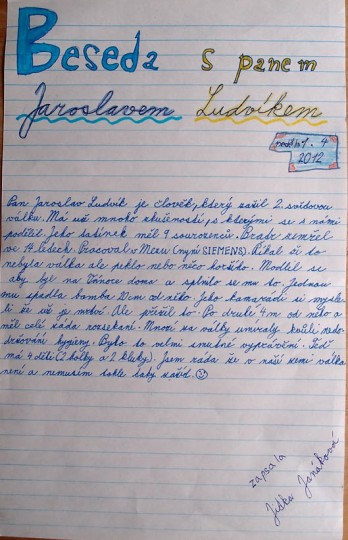 Beseda s panem
Jaroslavem Ludvíkem
neděle 1. 4
2012
Pan Jaroslav Ludvík je člověk, který zažil 2. světovou
válku. Má už mnoho zkušeností, s kterými se s námi
podělil. Jeho tatínek měl 9 sourozenců. Bratr zemřel
ve 14 letech. Pracoval v Mezu (nyní SIEMENS). Říkal že to
nebyla válka ale peklo nebo něco horšího. Modlil se
aby byl na Vánoce doma a splnilo se mu to. Jednou
mu spadla bomba 2m od něho. Jeho kamarádi si mysle-
li že už je mrtví. Ale přežil to. Po druhé 4m od něho a
měl celé záda rozsekaní. Mnozí za války umíraly kvůli nedo-
držování hygieny. Bylo to velmi smutné vyprávění. Teď
má 4 děti (2 holky a 2 kluky). Jsem ráda že v naší zemi válka
není a nemusím tohle taky zažít. ☺
zapsala
Jitka Janáková